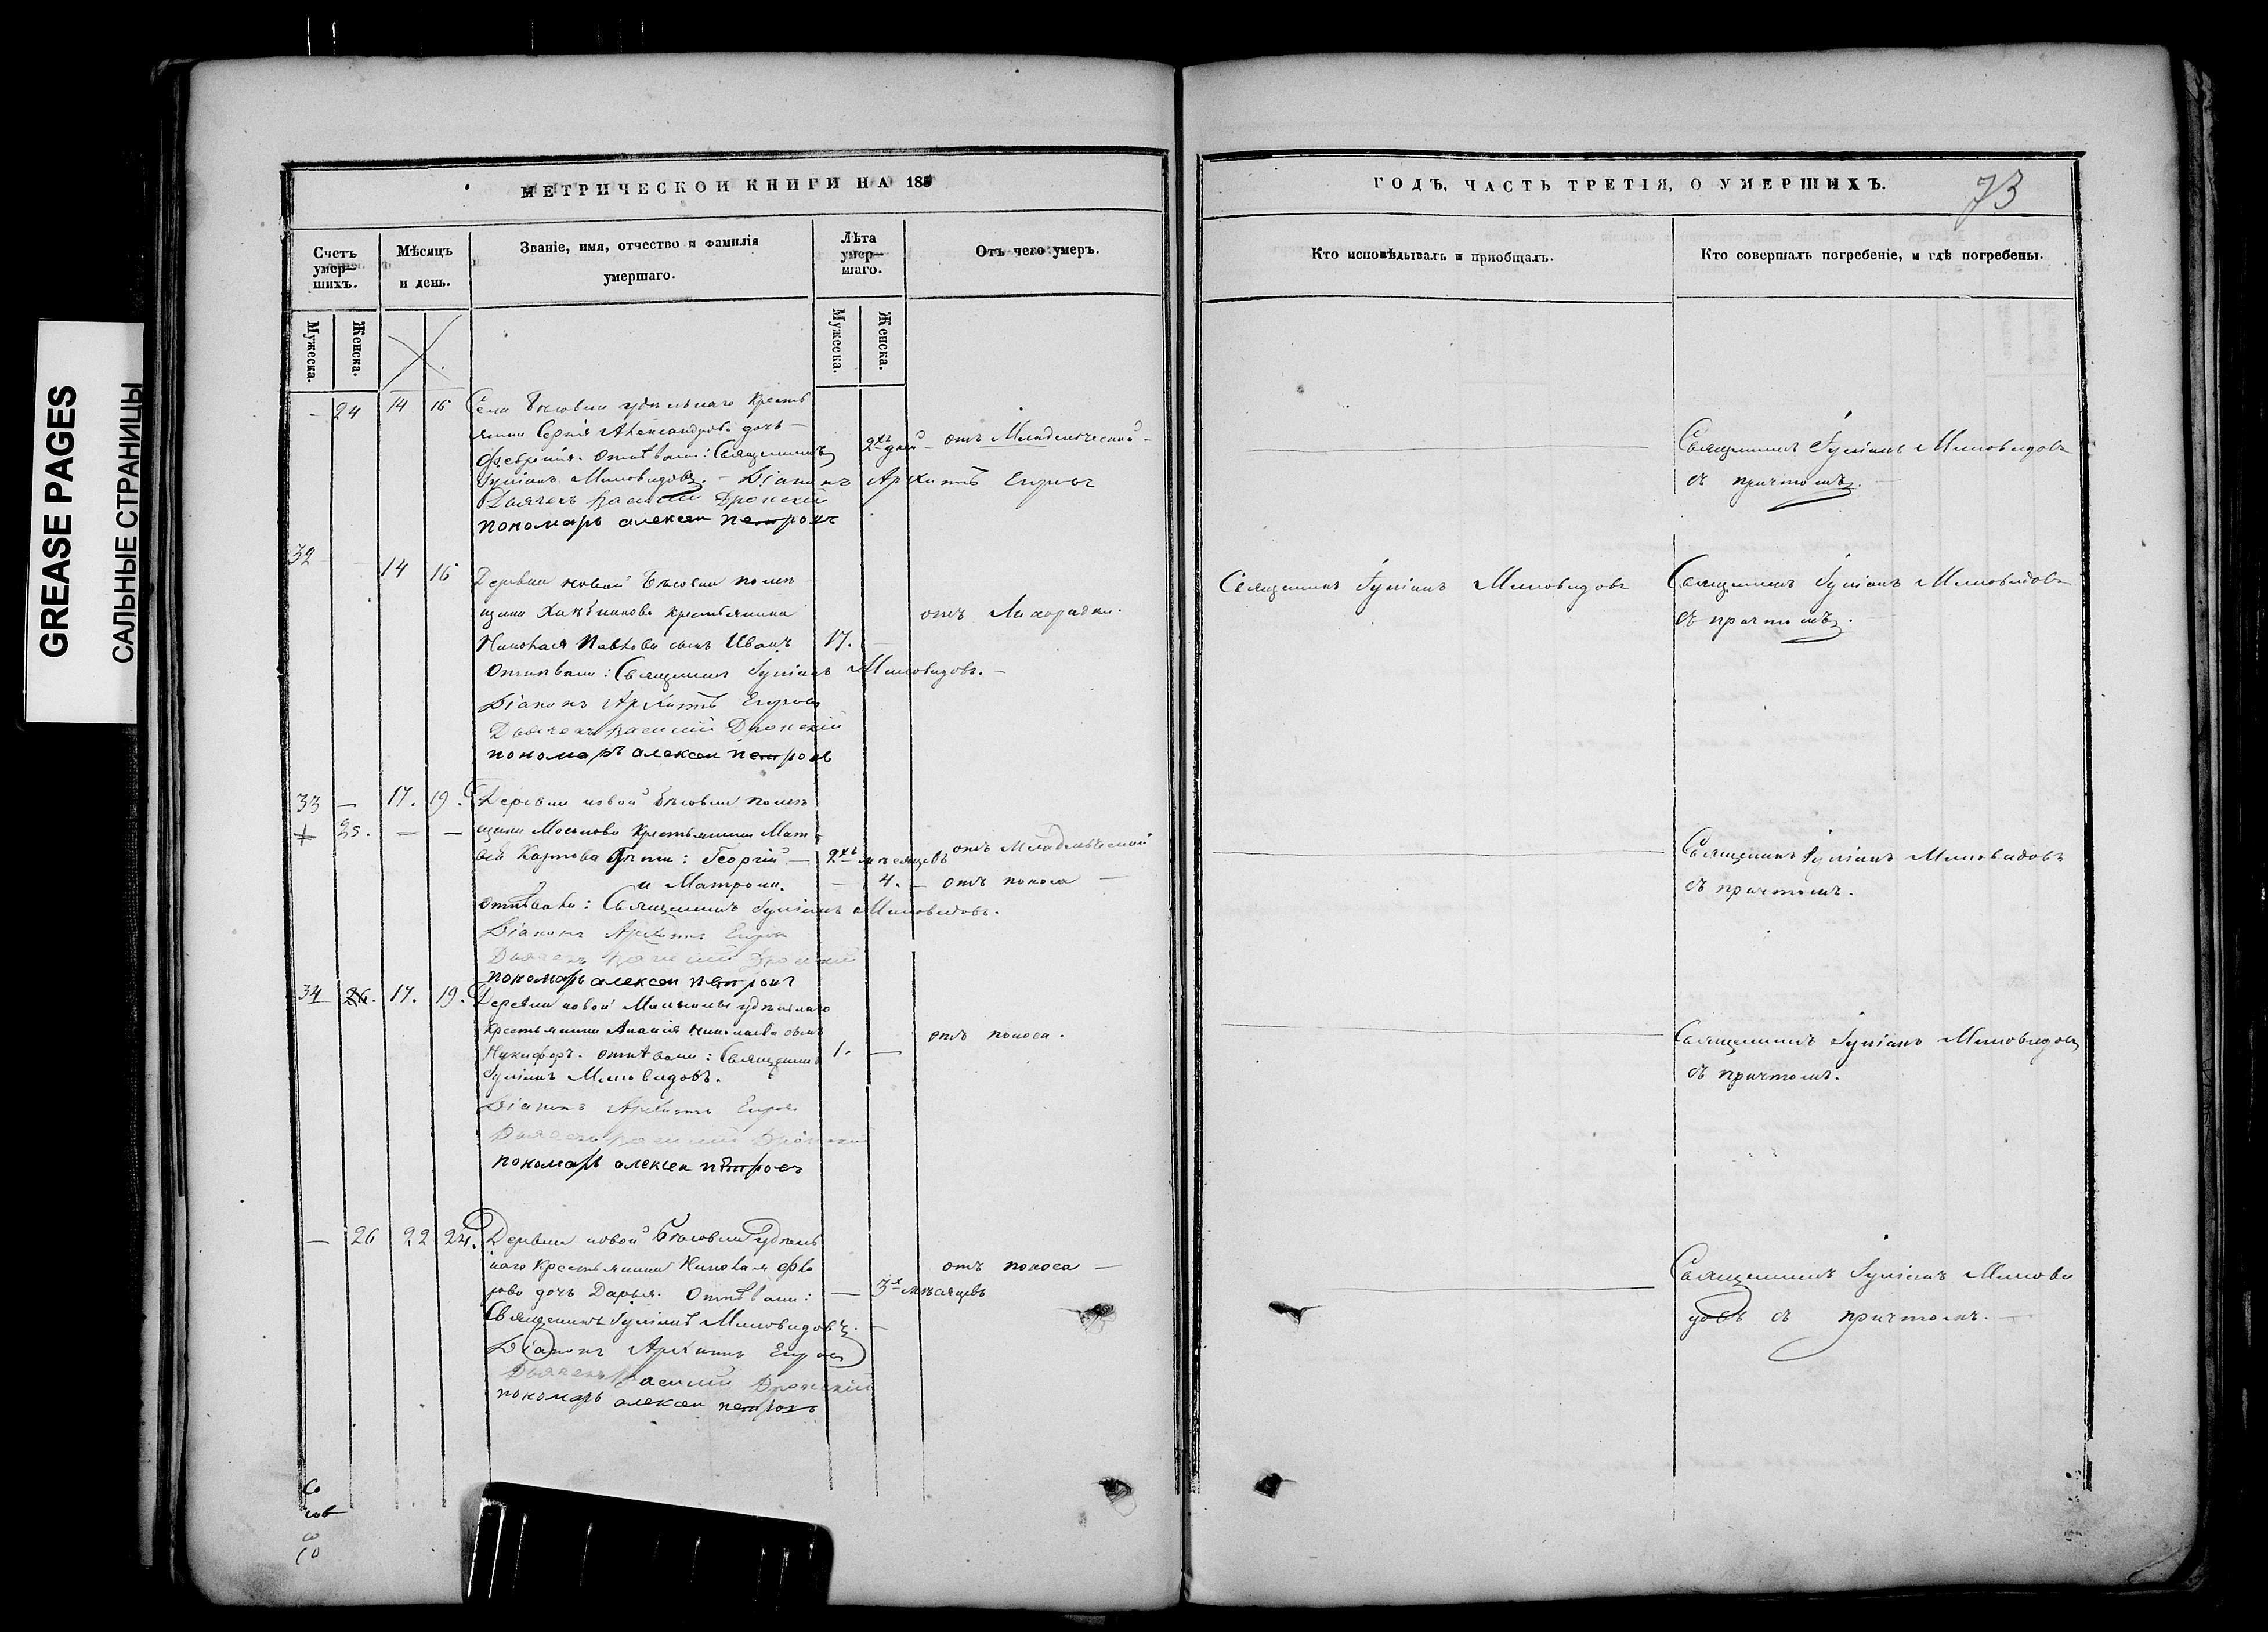 GREASE PAGES
САЛЬНЫЕ СТРАНИЦЫ
МЕТРИЧЕСКОЙ КНИГИ НА 185
Счетъ умер-шихъ.
Мѣсяцъ и день.
Званіе, имя, отчество и фамилія умершаго.
Лѣта умер-шаго.
Отъ чего умеръ.
Мужеска.
Женска.
Мужеска.
Женска.
- 24 14 16 Села удѣльнаго Кресть
янина Сергія Александрова дочь
Февронія. Отпѣвали: Священникъ 2хъ дней отъ Младенческой
Миловидовъ. Діаконъ Архипъ Егоровъ
Дьячекъ Василій Дронскій
пономарь алексеи петровъ
32 - 14 16 Деревни новой помѣ
щика крестьянина отъ Лихорадки.
Николая Павлова сынъ Иванъ 17. -
Отпѣвали: Священникъ Миловидовъ.
Діаконъ Архипъ Егоровъ
Дьячекъ Василій Дронскій
пономаръ алексеи петровъ
33 - 17. 19. Деревни новой помѣ
25. - - щика крестьянина Мат
вѣя Карпова дѣти: Георгій - 2хъ мѣсяцевъ отъ Младенческой
и Матрона. - 4. - отъ поноса -
отпѣвали: Священникъ Миловидовъ.
Діаконъ Архипъ Егоровъ
Дьячекъ Василій Дронскій
пономарь алексеи петровъ
34 26. 17. 19. Деревни новой удѣльнаго
Крестьянина Ананія Николаева сынъ
Никифоръ. отпѣвали: Священникъ 1. - отъ поноса.
Миловидовъ.
Діаконъ Архипъ Егоровъ
Дьячекъ Василій Дронскій
пономарь алексеи петровъ
- 26 22 24. Деревни новой удѣль
наго Крестьянина Николая Фео отъ поноса -
рова дочь Дарья. Отпѣвали: - 3х мѣсяцевъ
Священникъ Миловидовъ.
Діаконъ Архипъ Егоровъ
Дьячекъ Василій Дронскій
пономарь алексеи петровъ
ГОДЪ, ЧАСТЬ ТРЕТІЯ, О УМЕРШИХЪ.
73
Кто исповѣдывалъ и пріобщалъ.
Кто совершалъ погребеніе, и гдѣ погребены.
Священникъ Миловидовъ
съ причтомъ.
Священникъ Миловидовъ
Священникъ Миловидовъ
съ причтомъ.
Священникъ Миловидовъ
съ причтомъ.
Священникъ Миловидовъ
съ причтомъ.
Священникъ Милови
довъ съ причтомъ.